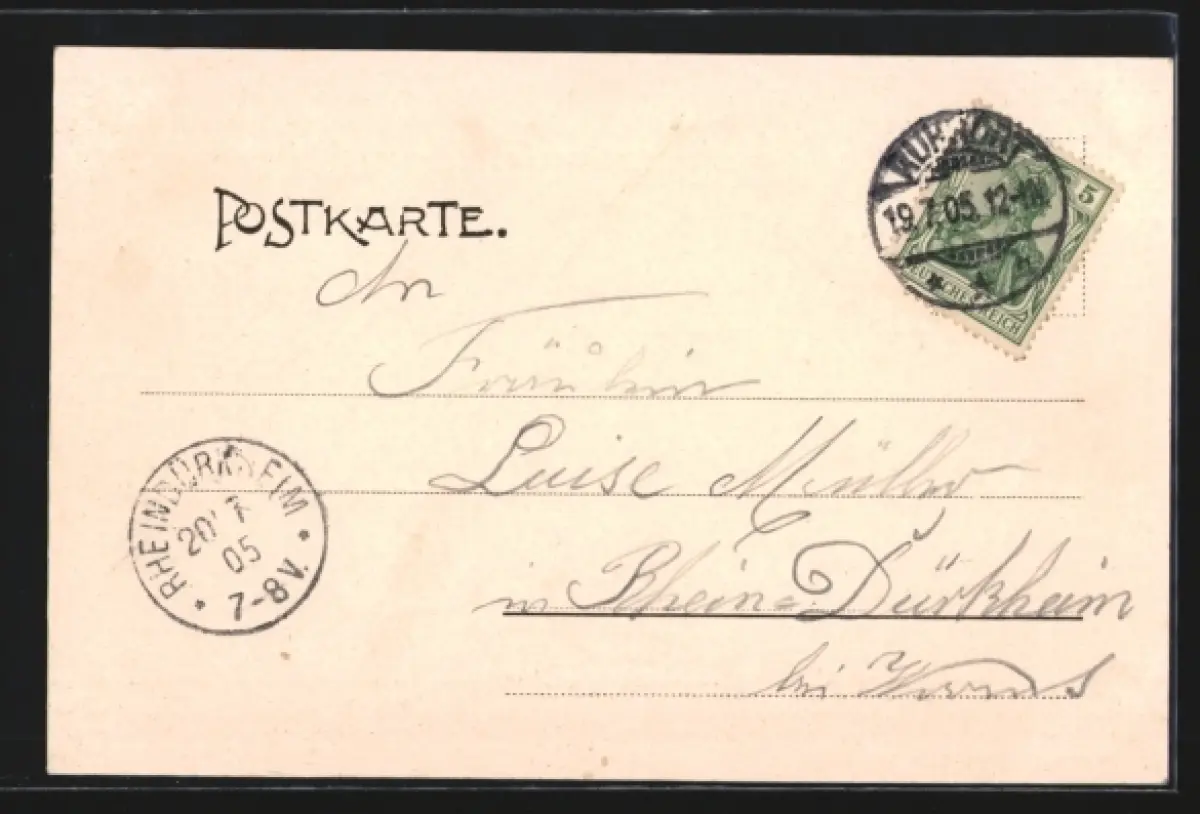 POSTKARTE.
An
Fräulein
Luise Müller
in Rhein=Dürkheim
bei Worms
19.7.05. 12-1N.
5
DEUTSCHES REICH
RHEINDÜRKHEIM
20 7
05
7-8V.